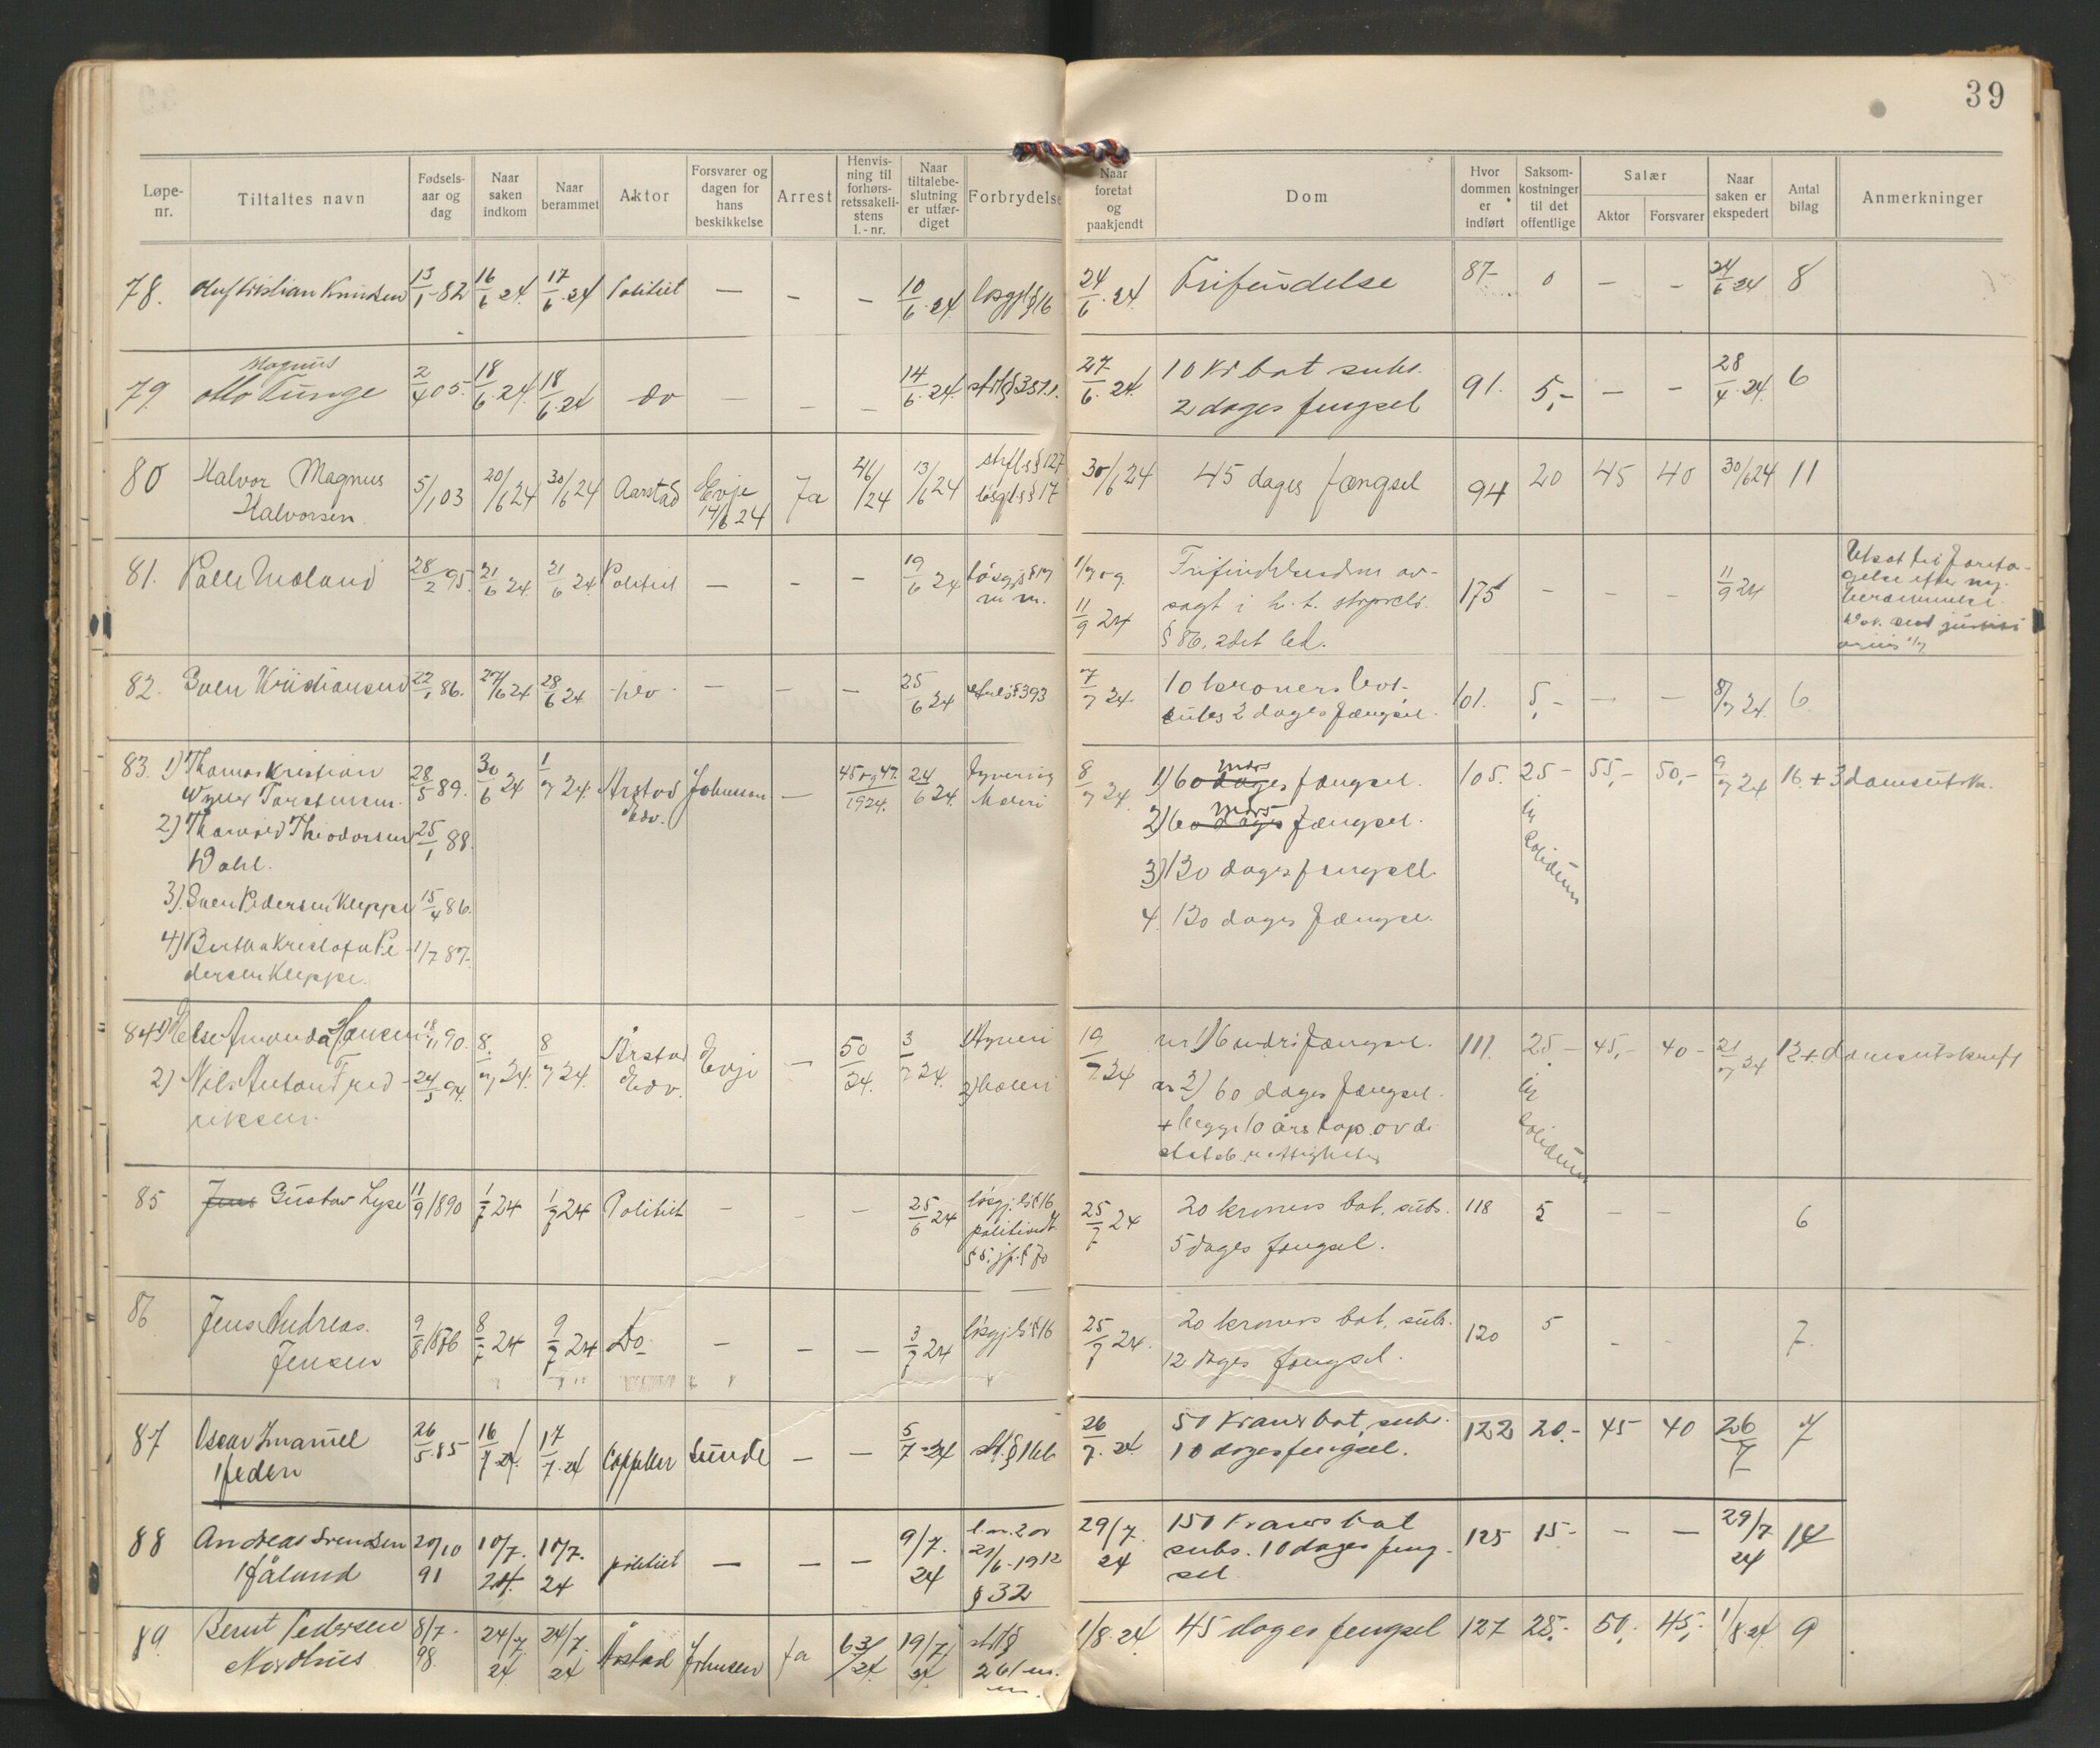 39
Løpe-nr. Tiltaltes navn Fødsels-aar og dag Naar saken indkom Naar berammet Aktor Forsvarer og dagen for hans beskikkelse Arrest Henvis-ning til forhørs-retssakeli-stens l.-nr. Naar tiltalebe-slutning er utfær-diget Forbrydelse Naar foretat og paakjendt Dom Hvor dommen er indført Saksom-kostninger til det offentlige Salær Aktor Forsvarer Naar saken er ekspedert Antal bilag Anmerkninger
78. Oluf Kristian Knudsen 13/1-82 16/6 24 17/6 24 Politiet — — — 10/6 24 løsgjl § 16 24/6 24 Frifindelse 87- 0 — — 24/6 24 8
Magnus
79. Otto Tunge 2/4 05 18/6 24 18/6 24 do — — — 14/6 24 strl § 351 1. 27/6 24 10 kr bot subs. 91. 5,- — — 28/4 24 6
2 dages fengsel
80 Halvor Magnus 5/1 03 20/6 24 30/6 24 Aarstad Evje Ja 46/24 13/6 24 strfls § 127 30/6 24 45 dages fængsel 94 20 45 40 30/6 24 11
Halvorsen 14/6 24 løsgjls § 17
81. Palle Mæland 28/2 95. 21/6 24 21/6 24 Politiet — — — 19/6 24 løsgjs § 17 m m. 1/7 og 11/9 24 175 — — — 11/9 24
sagt i h. t. strprcls.
§ 86, 2det led.
Utsat til foreta-
gelse efter ny
berammelse.
82. Sven Kristiansen 22/1 86. 27/6 24 28/6 24 — — — 25/6 24 strls § 393 7/7 24. 10 kroners bot- 101. 5,- — — 8/7 24 6
subs 2 dages fængsel.
83. 1) Thomas Kristian 28/5 89. 30/6 24 1/7 24. Årstad Johnsen — 45 og 47/1924. 24/6 24. 8/7 24. 1) 60 dages mdrs fængsel. 105. 25- 55,- 50,- 9/7 24 16 + 3 domsutskr.
Torstensen. Edv. Heleri
2) Thorvald Theodorsen 25/1 88. 2) 60 dages mdrs fængsel. in
Dahl. solidum
3) Sven Pedersen Kleppe 15/4 86. 3) 30 dages fengsel.
4) Bertha Kristofa Pe- 1/7 87. 4. 30 dages fængsel.
dersen Kleppe.
84 1) Else Amanda Hansen 18/11 90. 8/7 24. 8/7 24. Årstad Evje — 50/24. 3/7 24. 1) Tyveri 19/7 24 nr 1) 6 mdrs fængsel. 111. 25- 45,- 40- 21/7 24 12 + domsutskrift
2) Nils Anton Fred 24/5 94. Edv. 2) heleri nr 2) 60 dages fængsel. in
riksen. + begge 10 års tap av de solidum
statsb. rettigheter
85 Jens Gustav Lyse 11/9 1890 1/7 24 1/7 24 Politiet — — — 25/6 24 løsgj.ls § 16 25/7 24 20 kroners bot, subs. 118 5 — — 6
politivedt. 5 dages fængsel.
§ 5. jf. § 70
86 Jens Andreas. 9/8 1876 8/7 24 9/7 24 Do — — — 3/7 24 løsgj.ls § 16 25/7 24. 20 kroners bot, subs. 120 5 - - 7.
Jensen 12 dages fængsel.
87 Oscar Imanuel 26/5-85 16/7 24 17/7 24 Cappelen Sunde — — 5/7-24 26/7. 24 50 kroner bot, subs. 122 20.- 45 40 26/7 7
Ifeden 10 dages fengsel.
88 Andreas Svendsen 20/10 91 10/7. 24. 10/7. 24 politiet — — — 9/7. 24 l m. 2 av 29/7. 24 150 kroners bot 125 15- — — 29/7 24 14
Håland 21/6-1912 subs. 10 dages feng-
§ 32 sel
89. Bernt Pedersen 8/7. 98. 24/7. 24 24/7. 24 Årstad Johnsen Ja 63/24. 19/7 24. strl § 1/8 24 45 dages fengsel 127 25,- 50,- 45,- 1/8 24 9
Nordhus 261 m.
m.